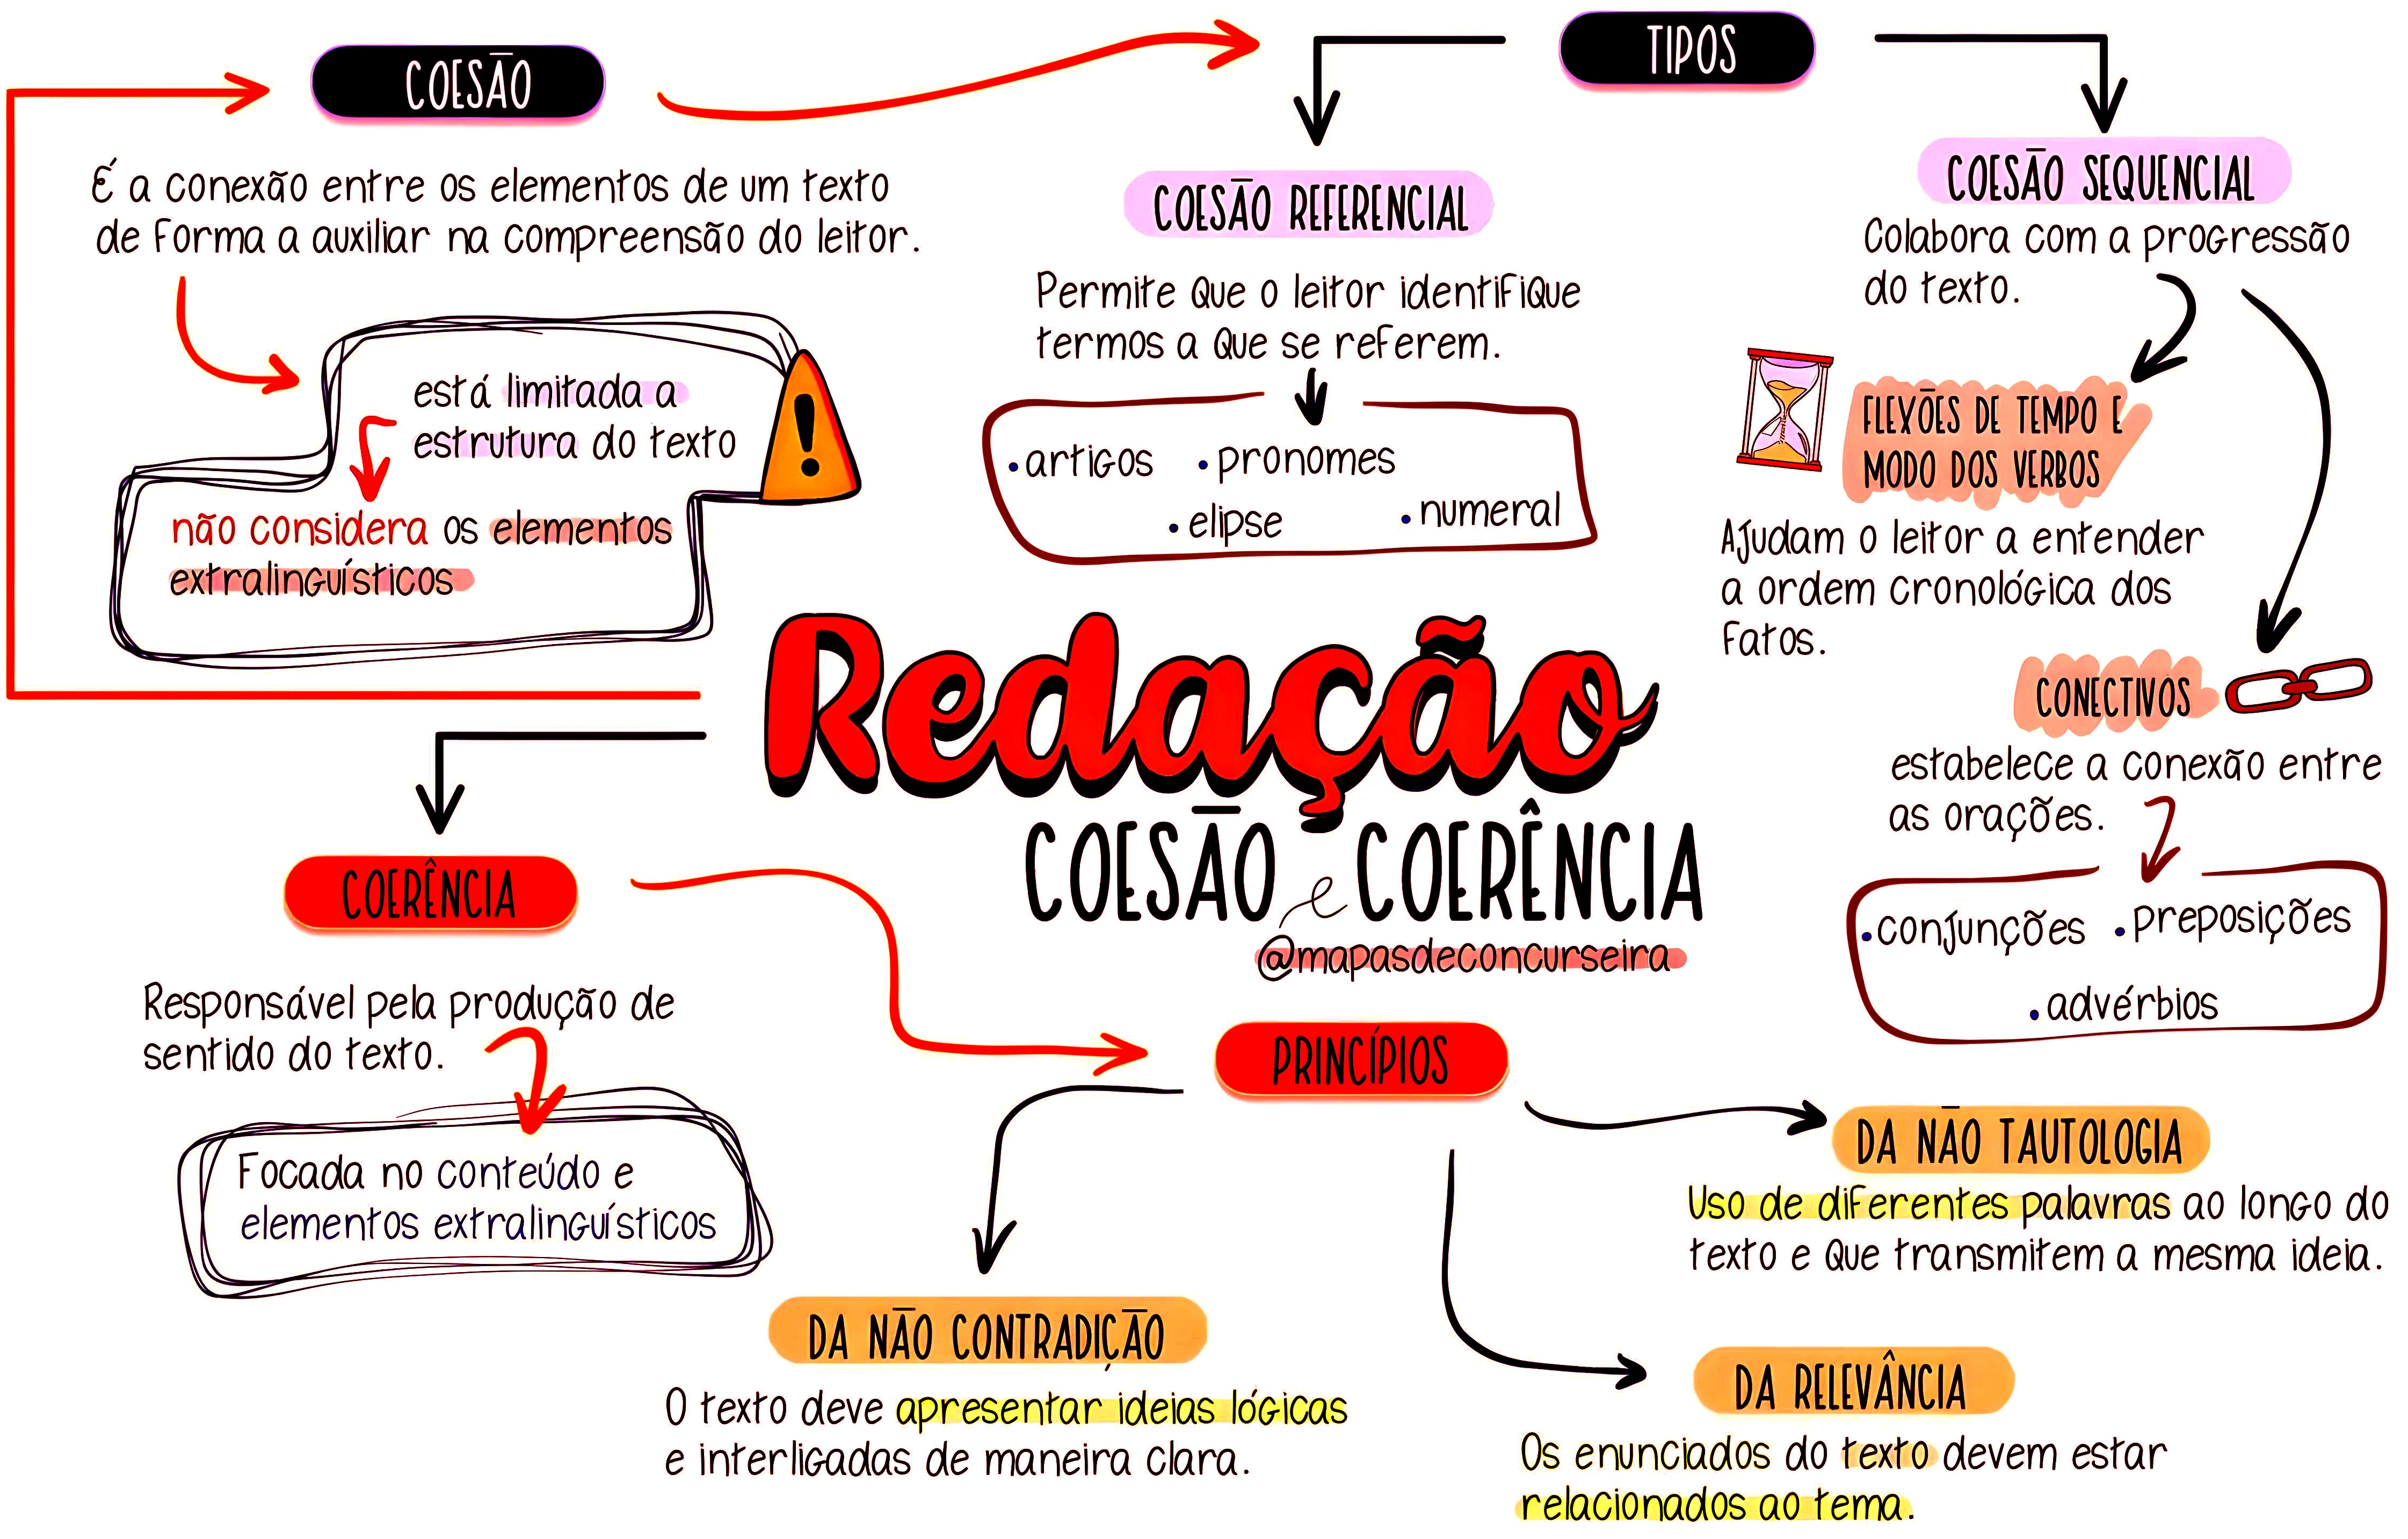 COESÃO
É a conexão entre os elementos de um texto
de forma a auxiliar na compreensão do leitor.
está limitada a
estrutura do texto
não considera os elementos
extralinguísticos
TIPOS
COESÃO REFERENCIAL
Permite que o leitor identifique
termos a que se referem.
• artigos • pronomes
• elipse • numeral
COESÃO SEQUENCIAL
Colabora com a progressão
do texto.
FLEXÕES DE TEMPO E
MODO DOS VERBOS
Ajudam o leitor a entender
a ordem cronológica dos
fatos.
CONECTIVOS
estabelece a conexão entre
as orações.
• conjunções • preposições
• advérbios
Redação
COESÃO e COERÊNCIA
@mapasdeconcurseira
COERÊNCIA
Responsável pela produção de
sentido do texto.
Focada no conteúdo e
elementos extralinguísticos
PRINCÍPIOS
DA NÃO CONTRADIÇÃO
O texto deve apresentar ideias lógicas
e interligadas de maneira clara.
DA NÃO TAUTOLOGIA
Uso de diferentes palavras ao longo do
texto e que transmitem a mesma ideia.
DA RELEVÂNCIA
Os enunciados do texto devem estar
relacionados ao tema.